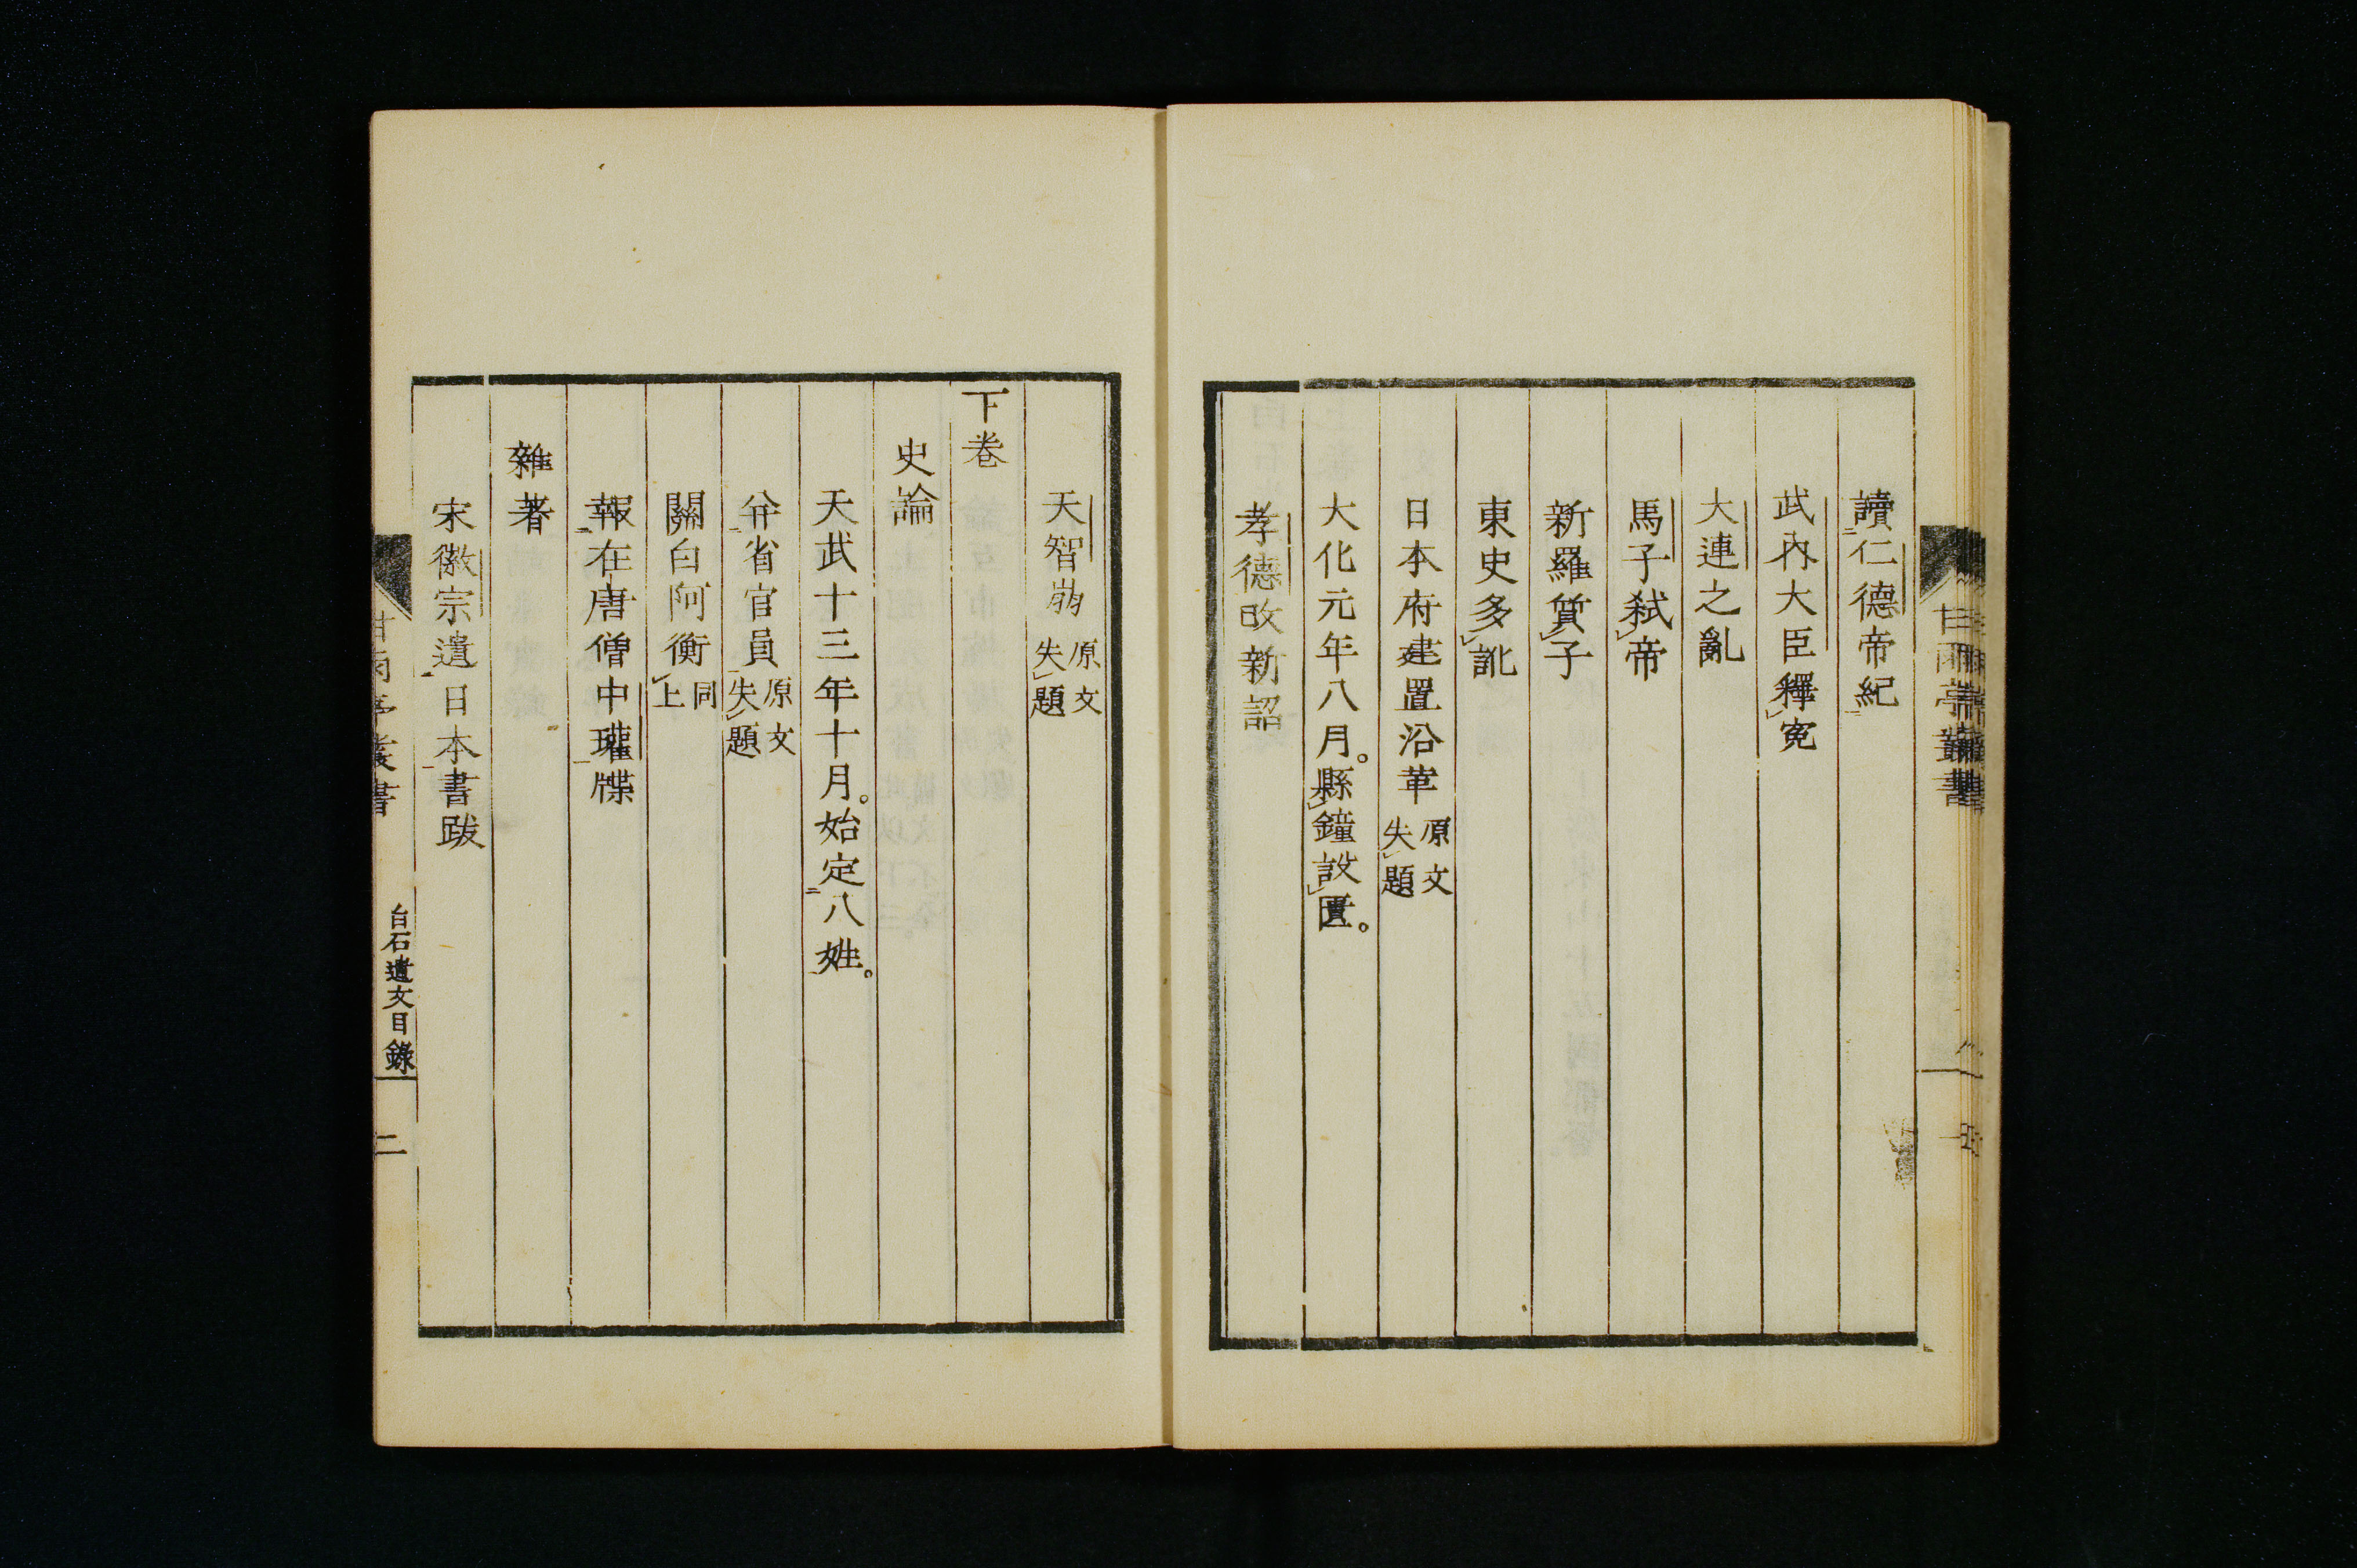 讀仁德帝紀
武內大臣釋寃
大連之亂
馬子弒帝
新羅質子
東史多訛
日本府建置沿革 原文失題
大化元年八月。縣鐘設匱。
孝德改新詔
天智崩 原文失題
下卷
史論
天武十三年十月。始定八姓。
幷省官員 原文失題
關白阿衡 同上
報在唐僧中瓘牒
雜著
宋徽宗遺日本書跋
甘雨亭叢書
白石遺文目錄
二
甘雨亭叢書